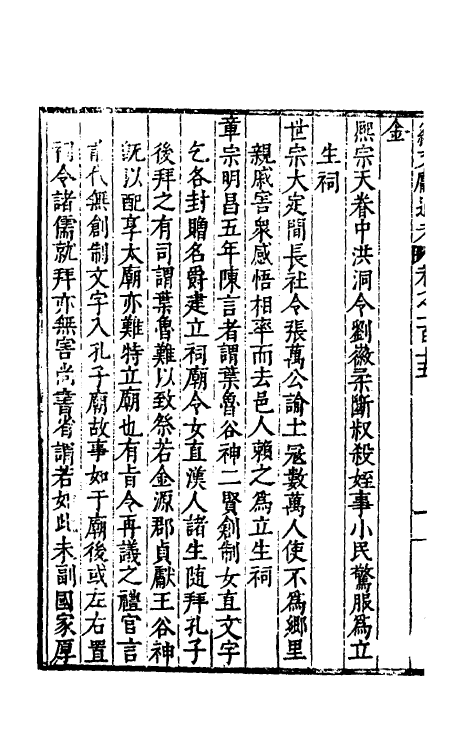 續文獻通考 卷之一百十五
金
熙宗天眷中洪洞令劉徽柔斷叔殺姪事小民驚服為立
生祠
世宗大定間長社令張萬公諭土冦數萬人使不為鄉里
親戚害衆感悟相率而去邑人賴之為立生祠
章宗明昌五年陳言者謂葉魯谷神二賢創制女直文字
乞各封贈名爵建立祠廟令女直漢人諸生随拜孔子
後拜之有司謂葉魯難以致祭若金源郡貞獻王谷神
既以配享太廟亦難特立廟也有旨令再議之禮官言
前代無創制文字入孔子廟故事如于廟後或左右置
祠令諸儒就拜亦無害尚書省謂若如此未副國家厚